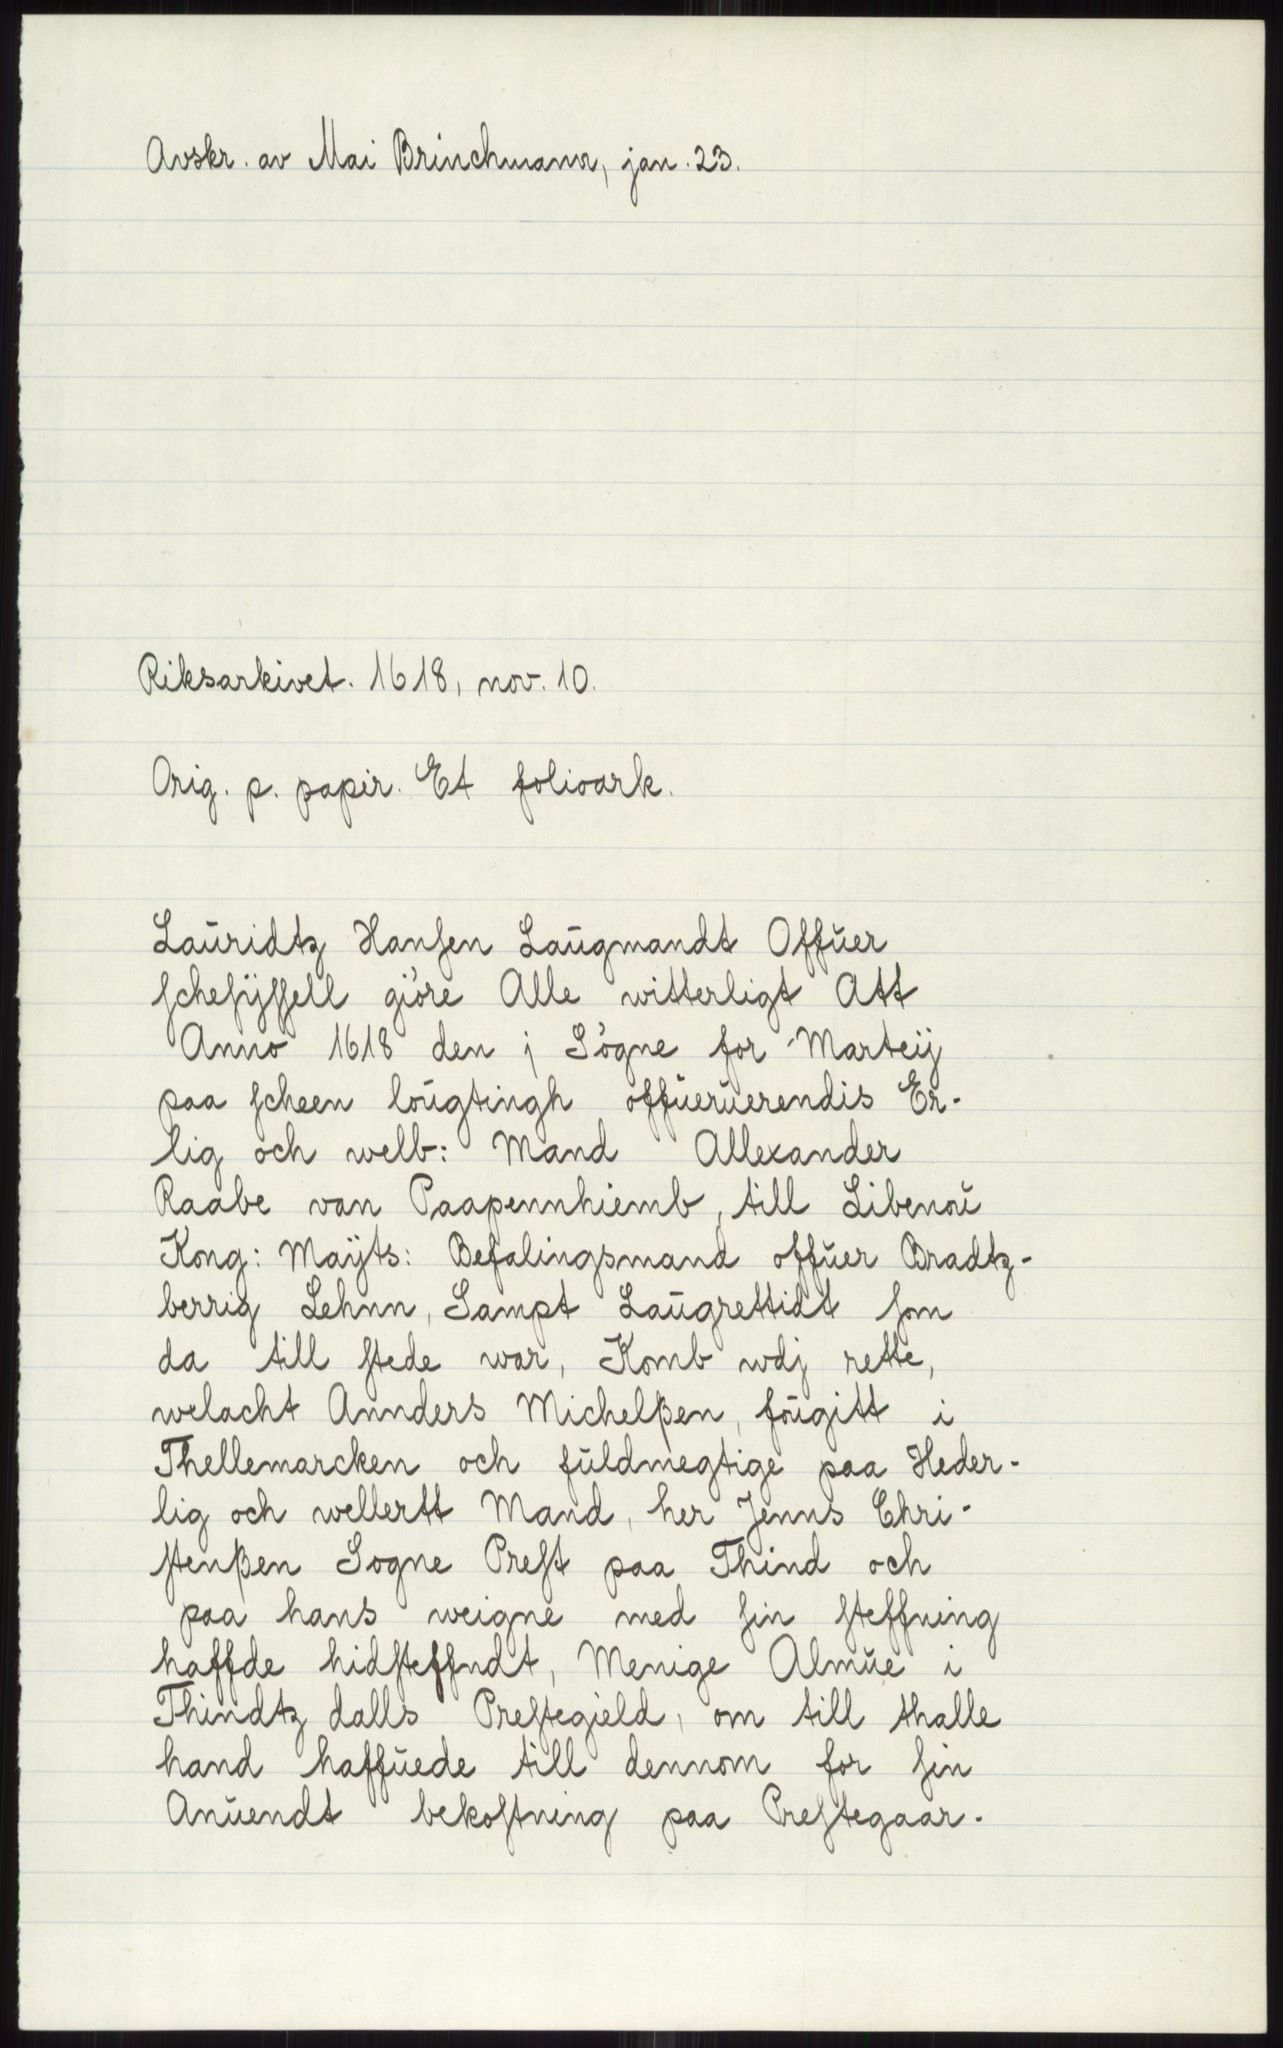 Avskr. av Mai Brinchmann, jan. 23.
Riksarkivet. 1618, nov. 10.
Orig. p. papir. Et folioark.
Laŭridtz Hanſen Laŭgmandt Offŭer
ſcheſÿſſell giöre Alle witterligt Att
Anno 1618 den j Sögne for Marteij
paa ſcheen loŭgtingh offŭerŭerendis Er-
lig och welb: Mand Allexander
Raabe van Paapennhiemb, till Libenoŭ
Kong: Maÿts: Befalingsmand offŭer Bradtz-
berrig Lehnn, Sampt Laŭgrettidt ſom
da till ſtede war, Komb wdj rette,
welacht Annders Michelßen, foŭgitt i
Thellemarcken och fŭldmegtige paa Heder-
lig och wellertt Mand, her Jenns Chri-
ſtenßen Sogne Preſt paa Thind och
paa hans weigne med ſin ſteffning
haffde hidſteffndt, Menige Almŭe i
Thindtz dalls Preſtegield, om till thalle
hand haffŭede till dennom for ſin
Anŭendt bekoſtning paa Preſtegaar-